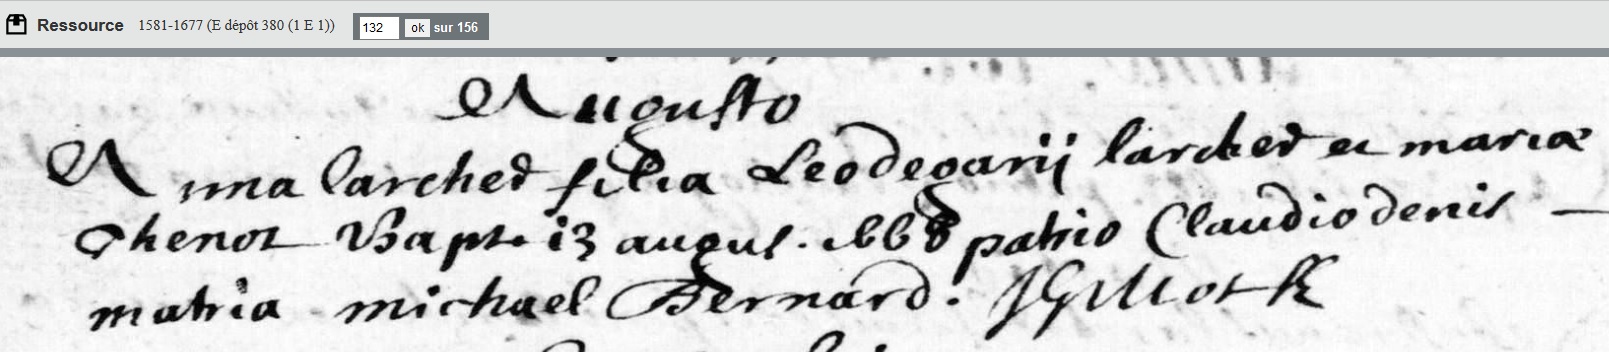 Ressource 1581-1677 (E dépôt 380 (1 E 1)) 132 ok sur 156
Augusto
Anna larcher filia Leodegarij larcher et mariæ
Thenot Bapt. 13 augus. 1668 patrio Claudio denis
matria michael Bernard. JGillot